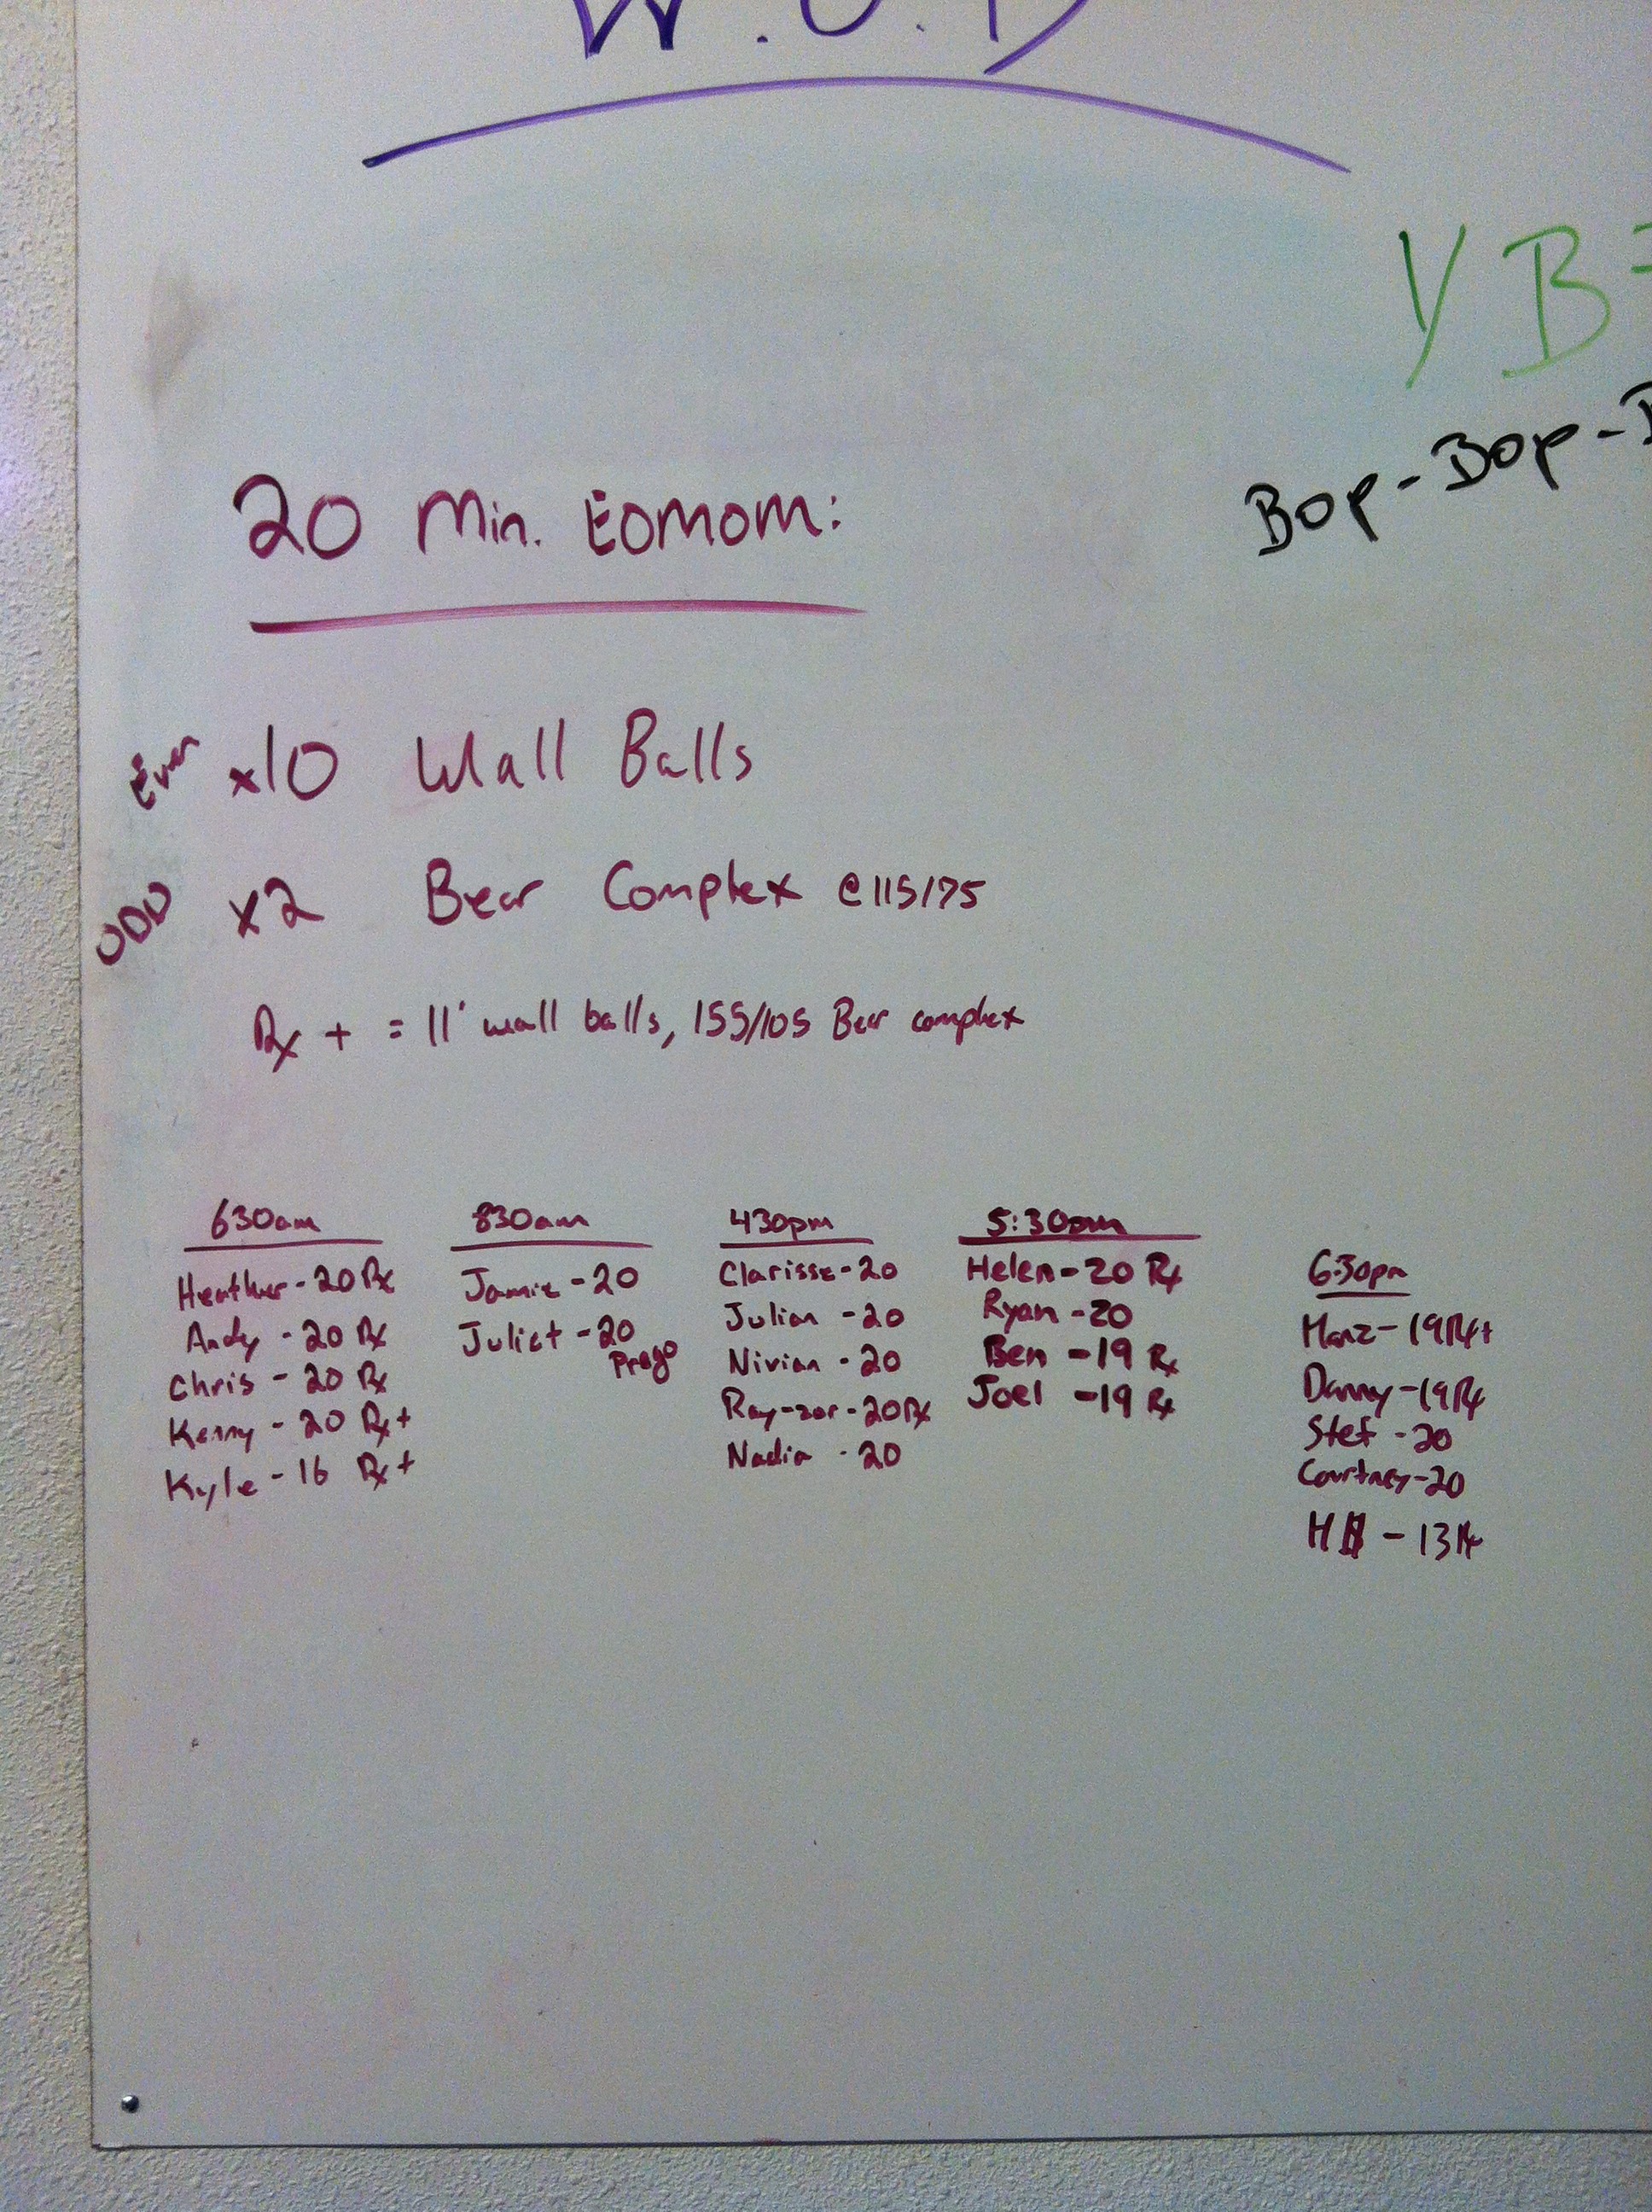 W.O.D
YB
Bop-Bop-
20 Min. EOMOM:
Even x10 Wall Balls
ODD x2 Bear Complex @115/75
Rx + = 11' wall balls, 155/105 Bear complex
630am
Heather - 20 Rx
Andy - 20 Rx
Chris - 20 Rx
Kenny - 20 Rx+
Kyle - 16 Rx+
830am
Jamie - 20
Juliet - 20
Prego
430pm
Clarisse - 20
Julian - 20
Nivian - 20
Ray-zor - 20 Rx
Nadia - 20
5:30pm
Helen - 20 Rx
Ryan - 20
Ben - 19 Rx
Joel - 19 Rx
630pm
Manz - 19 Rx+
Danny - 19 Rx
Stef - 20
Courtney - 20
- 13 Rx